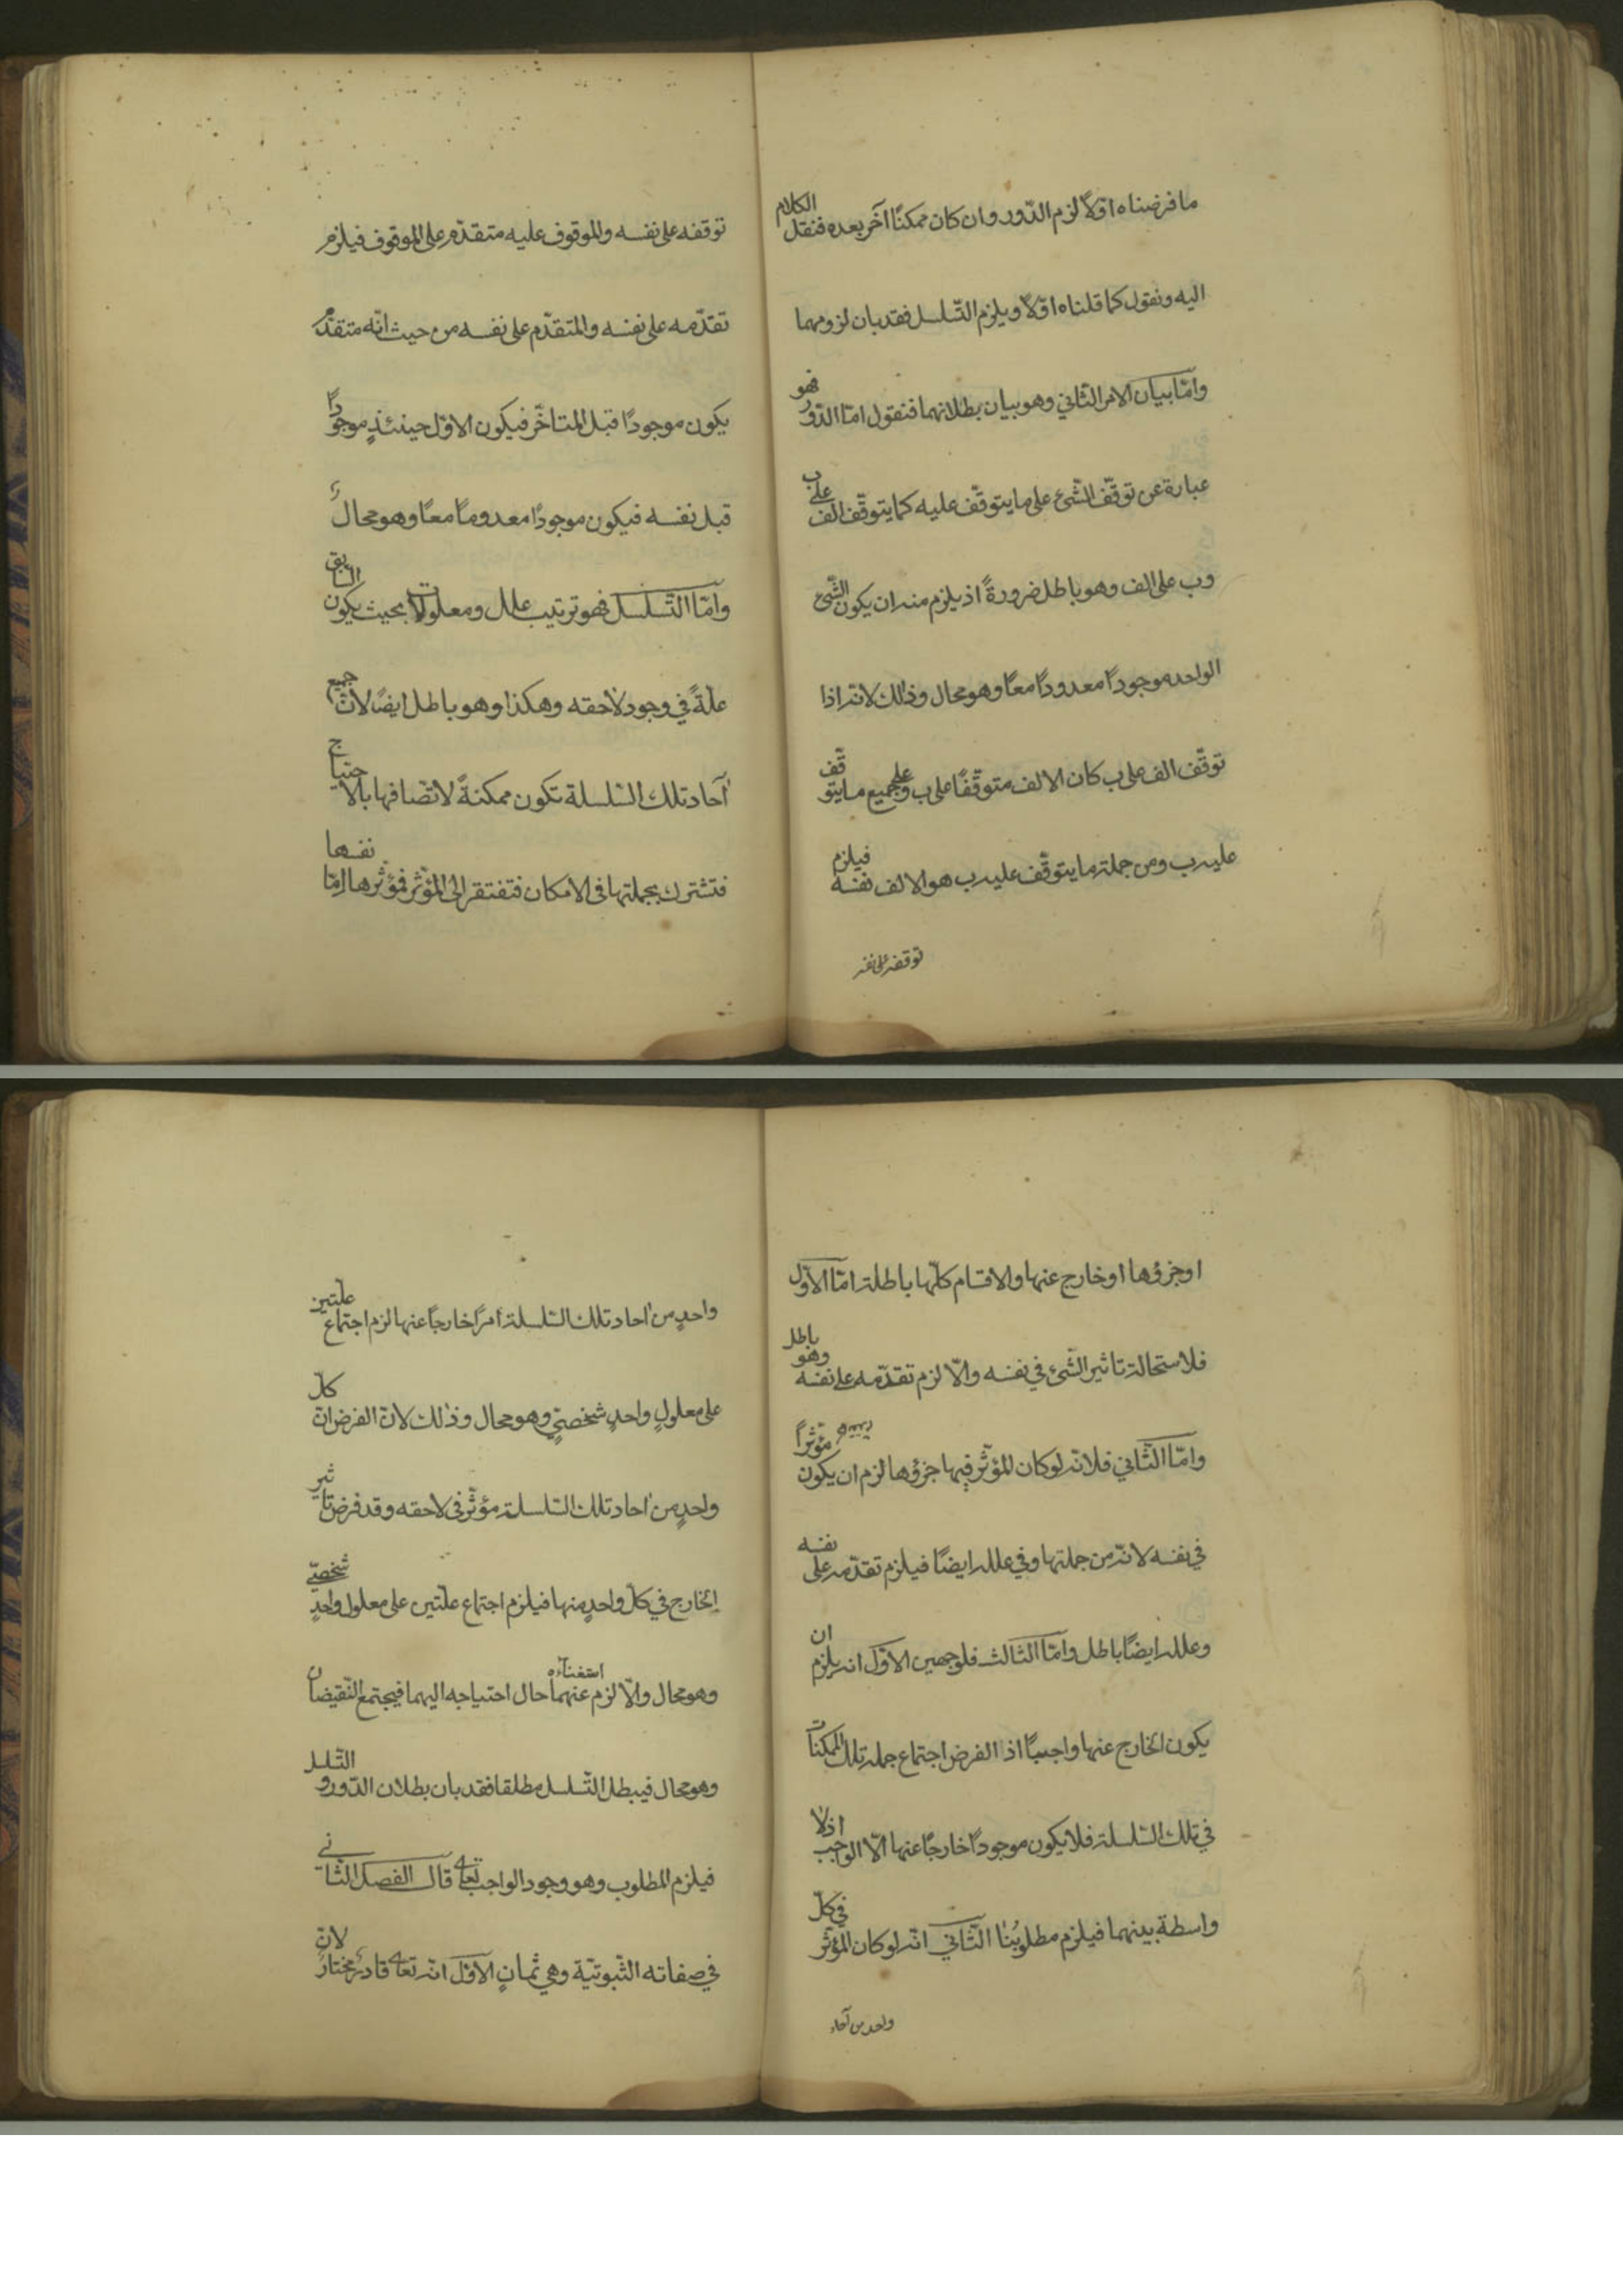 ما فرضناه اوّلًا لزم الدّور وان كان ممكنًا آخر بعده فننقل الكلام
اليه ونقول كما قلناه اوّلًا ويلزم التّسلسل فقد بان لزومهما
وامّا بيان الامر الثّاني وهو بيان بطلانهما فنقول امّا الدّور فهو
عبارة عن توقّف الشّئ على ما يتوقّف عليه كما يتوقّف الف على ب
وب على الف وهو باطل ضرورةً اذ يلزم منه ان يكون الشّئ
الواحد موجودًا معدودًا معًا وهو محال وذلك لانّه اذا
توقّف الف على ب كان الالف متوقّفًا على ب وعلى جميع ما يتوقّف
عليه ب ومن جملة ما يتوقّف عليه ب هو الالف نفسه فيلزم
توقفه على نفسه
توقفه على نفسه والموقوف عليه متقدّم على الموقوف فيلزم
تقدّمه على نفسه والمتقدّم على نفسه من حيث انّه متقدّم
يكون موجودًا قبل المتاخّر فيكون الاوّل حينئذٍ موجودًا
قبل نفسه فيكون موجودًا معدومًا معًا وهو محال
وامّا التّسلسل فهو ترتيب علل ومعلولات بحيث يكون السّابق
علّةً في وجود لاحقه وهكذا وهو باطل ايضًا لانّ جميع
آحاد تلك السّلسلة تكون ممكنةً لاتّصافها بالاحتياج
فتشترك بجملتها فى الامكان فتفتقر الى المؤثّر فمؤثّرها امّا نفسها
او جزؤها او خارج عنها والاقسام كلّها باطلة امّا الاوّل
فلاستحالة تاثير الشّئ في نفسه والّا لزم تقدّمه على نفسه وهو باطل
وامّا الثّاني فلانّه لو كان المؤثّر فيها جزؤها لزم ان يكون مؤثّرًا
في نفسه لانّه من جملتها وفي علله ايضًا فيلزم تقدّمه على نفسه
وعلله ايضًا باطل وامّا الثالث فلوجهين الاوّل انه يلزم ان
يكون الخارج عنها واجبًا اذ الفرض اجتماع جملة تلك الممكنات
في تلك السّلسلة فلا يكون موجودًا خارجًا عنها الّا الواجب اذ لا
واسطة بينهما فيلزم مطلوبُنا الثّاني انّه لو كان المؤثّر في كلّ
واحد من آحاد
واحدٍ من احاد تلك السّلسلة امرًا خارجًا عنها لزم اجتماع علّتين
على معلولٍ واحدٍ شخصّيٍ وهو محال وذلك لانّ الفرض انّ كلّ
واحدٍ من احاد تلك السّلسلة مؤثّر فى لاحقه وقد فرض تاثير
الخارج في كلّ واحدٍ منها فيلزم اجتماع علّتين على معلول واحدٍ شخصّيٍ
وهو محال والّا لزم استغناءه عنهما حال احتياجه اليهما فيجتمع النّقيضان
وهو محال فيبطل التّسلسل مطلقا فقد بان بطلان الدّور والتّسلسل
فيلزم المطلوب وهو وجود الواجب تعالى قال الفصل الثّاني
في صفاته الثّبوتيّة وهي ثمانٍ الاوّل انّه تعالى قادرٌ مختارٌ لانّ